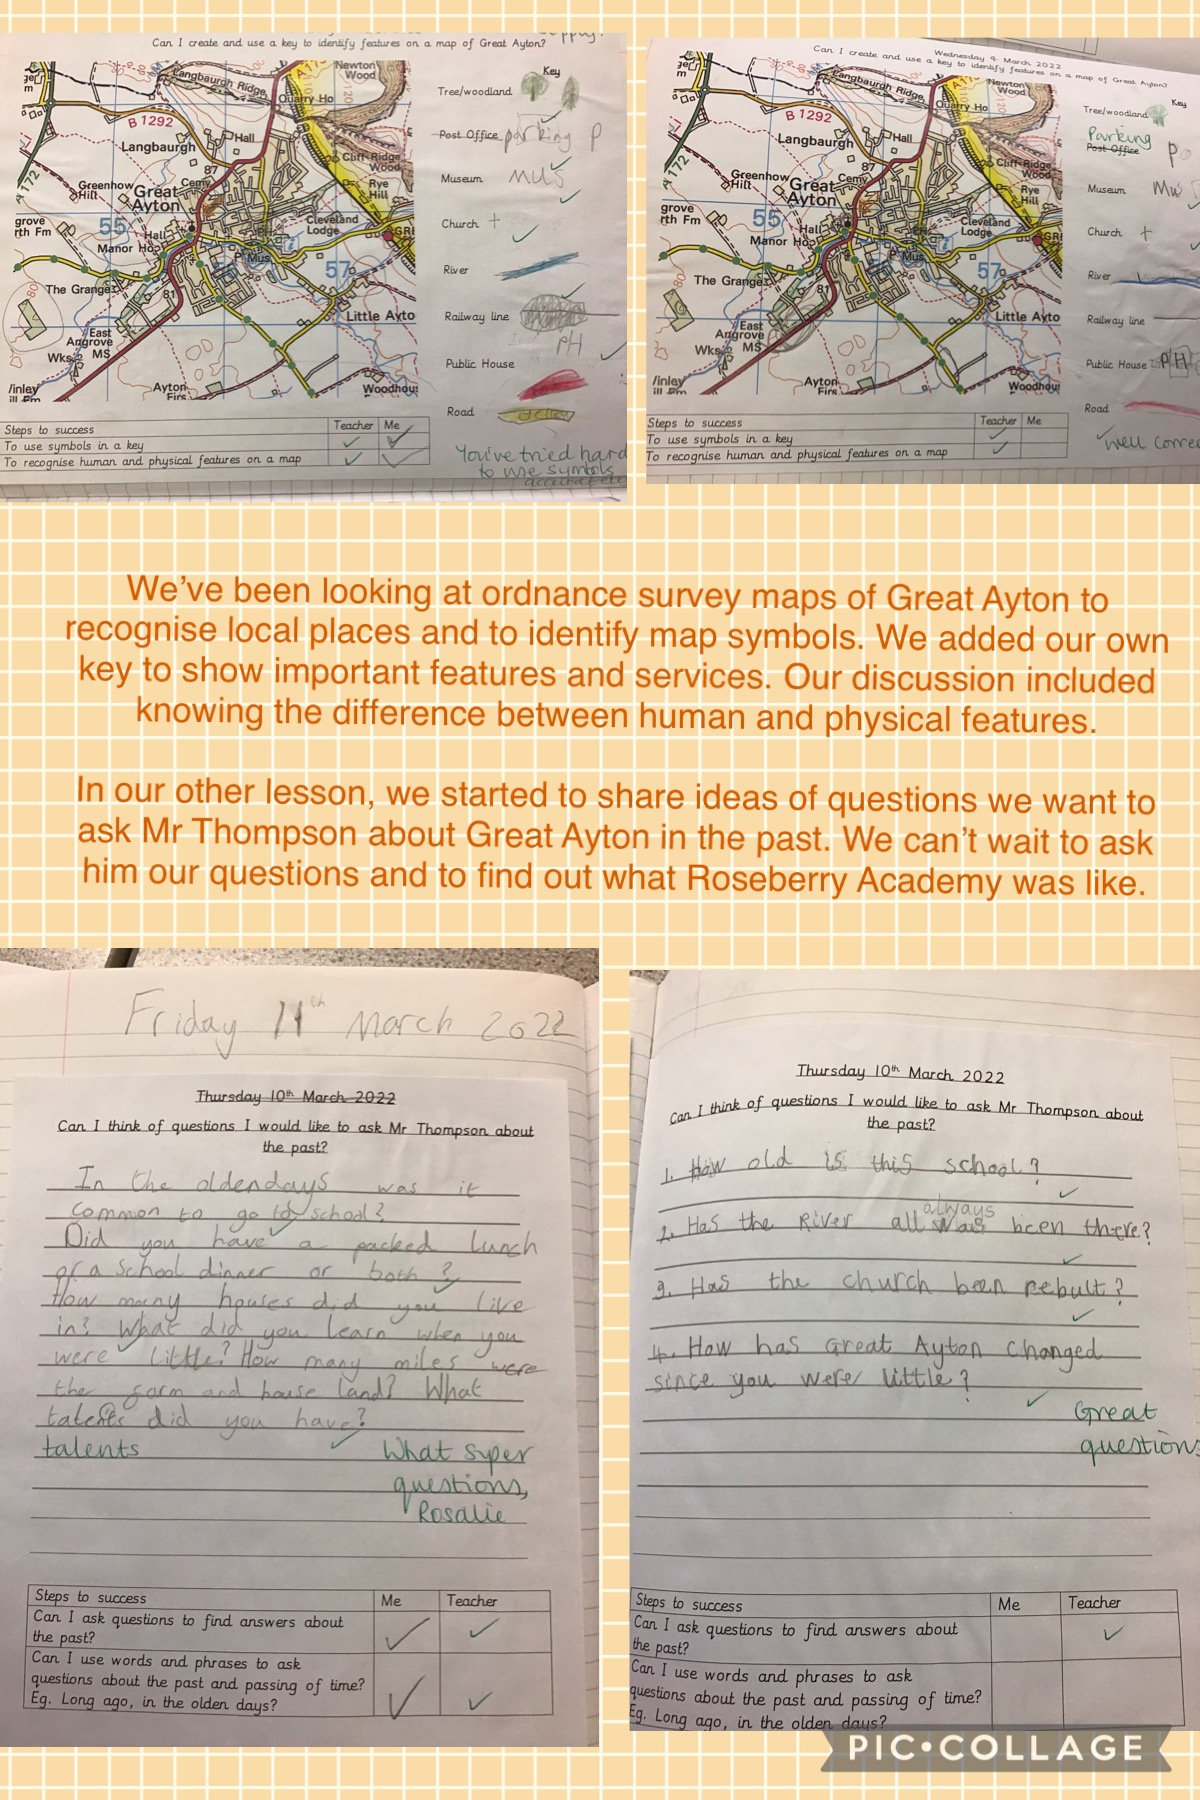 Can I create and use a key to identify features on a map of Great Ayton?
Key
Tree/woodland
Post Office parking P
Museum Mus
Church +
River
Railway line
PH
Public House
Road
Newton
Wood
Langbaurgh Ridge
Quarry Ho
B 1292
Langbaurgh
Hall
Cliff Ridge
Wood
87
Greenhow
Hill
Great
Ayton
Cemy
Rye
Hill
A 172
grove
rth Fm
55
Hall
Manor Ho
Cleveland
Lodge
P Mus
57
The Grange
80
81
Little Ayto
East
Angrove
Wks MS
Ayton
Firs
Woodhou
Steps to success Teacher Me
To use symbols in a key
To recognise human and physical features on a map
You've tried hard
to use symbols
accurately
Wednesday 9 March 2022
Can I create and use a key to identify features on a map of Great Ayton?
Key
Tree/woodland
Parking
Post Office P
Museum Mus
Church +
River
Railway line
Public House PH
Road
Newton
Wood
Langbaurgh Ridge
Quarry Ho
B 1292
Langbaurgh
Hall
Cliff Ridge
Wood
87
Greenhow
Hill
Great
Ayton
Cemy
Rye
Hill
A 172
grove
rth Fm
55
Hall
Manor Ho
Cleveland
Lodge
P Mus
57
The Grange
80
81
Little Ayto
East
Angrove
Wks MS
Ayton
Firs
Woodhou
Steps to success Teacher Me
To use symbols in a key
To recognise human and physical features on a map
Well corre
We've been looking at ordnance survey maps of Great Ayton to
recognise local places and to identify map symbols. We added our own
key to show important features and services. Our discussion included
knowing the difference between human and physical features.
In our other lesson, we started to share ideas of questions we want to
ask Mr Thompson about Great Ayton in the past. We can't wait to ask
him our questions and to find out what Roseberry Academy was like.
Friday 11th March 2022
Thursday 10th March 2022
Can I think of questions I would like to ask Mr Thompson about
the past?
In the oldendays was it
common to go to school?
Did you have a packed lunch
or a school dinner or both?
How many houses did you live
in? What did you learn when you
were little? How many miles were
the farm and house land? What
did you have?
talents
What super
questions,
Rosalie
Steps to success Me Teacher
Can I ask questions to find answers about
the past?
Can I use words and phrases to ask
questions about the past and passing of time?
Eg. Long ago, in the olden days?
Thursday 10th March 2022
Can I think of questions I would like to ask Mr Thompson about
the past?
1. How old is this school?
always
2. Has the River all was been there?
3. Has the church been rebult?
4. How has Great Ayton changed
since you were little?
Great
questions
Steps to success Me Teacher
Can I ask questions to find answers about
the past?
Can I use words and phrases to ask
questions about the past and passing of time?
Eg. Long ago, in the olden days?
PIC•COLLAGE